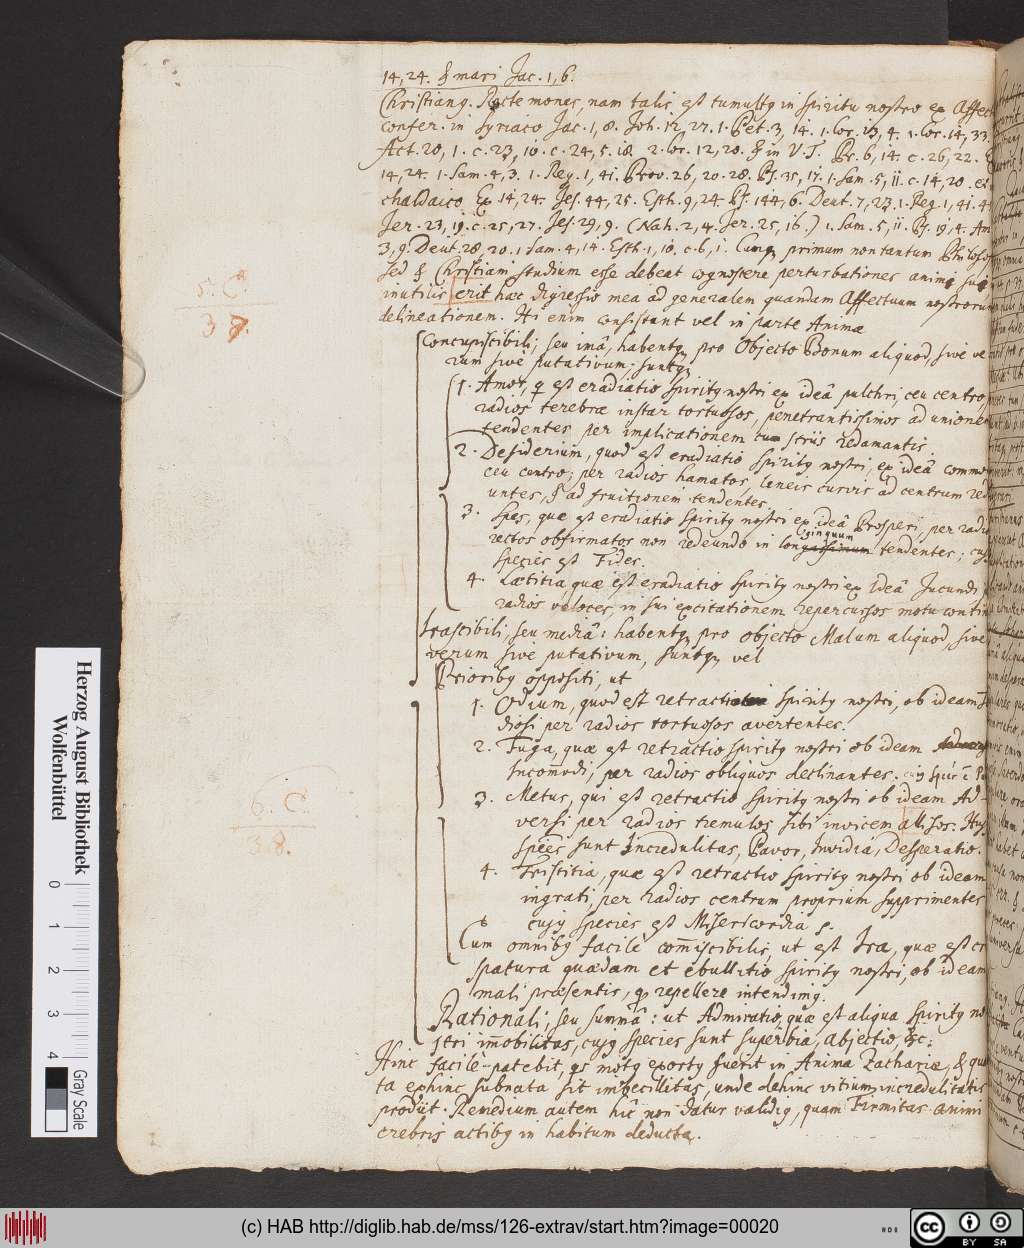 14, 24. & mari Jac. 1, 6.
Christianq. Recte mones, nam talis est tumultq in spiritu nostro ex Affect
confer. in Syriaco Jac. 1, 8. Joh. 12, 27. 1. Pet. 3, 14. 1. Cor. 13, 4. 1. Cor. 14, 33.
Act. 20, 1. c. 23, 10. c. 24, 5. 18. 2. Cor. 12, 20. & in V. T. Pr. 6, 14. c. 26, 22.
14, 24. 1. Sam. 4, 3. 1. Reg. 1, 41. Prov. 26, 20. 28. Ps. 35, 15. 1. Sam. 5, 11. c. 14, 20. ex
chaldaico Ex 14, 24. Jes. 44, 25. Esth. 9, 24. Ps. 144, 6. Deut. 7, 23. 1. Reg. 1, 41. 4
Jer. 23, 19. c. 25, 27. Jes. 29, 9. (Nah. 2, 4. Jer. 25, 16.) 1. Sam. 5, 11. Ps. 19, 4. Am
3, 9. Deut. 28, 20. 1. Sam. 4, 14. Esth. 1, 10. c. 6, 1. Cumq primum non tantum Philosop
sed & Christiani studium esse debeat cognoscere perturbationes animi sui
inutilis erit haec digressio mea ad generalem quandam Affectuum nostrorum
delineationem. Hi enim consistunt vel in parte Animae
Concupiscibili; seu imâ, habentq pro Objecto Bonum aliquod, sive ve
rum sive putativum; suntq
1. Amor, q est eradiatio spiritq nostri ex ideâ pulchri, ceu centro,
radios terebrae instar tortuosos, penetrantissimos ad unionem
tendentes per implicationem cum striis redamantis.
2. Desiderium, quod est eradiatio spiritq nostri, ex ideâ commo
ceu centro; per radios hamatos, leneis curvis ad centrum red
untes, & ad fruitionem tendentes.
3. Spes, quae est eradiatio spiritq nostri ex ideâ Prosperi, per radi
rectos obfirmatos non redeundo in longinquum tendentes; cujq
species est Fides.
4. Laetitia quae est eradiatio spiritq nostri ex ideâ Jucundi,
radios veloces, in sui excitationem repercussos motu contin
Irascibili, seu mediâ: habentq pro objecto Malum aliquod, sive
verum sive putativum, suntq vel
Prioribq oppositi, ut
1. Odium, quod est retractio spiritq nostri, ob ideam
diosi per radios tortuosos avertentes.
2. Fuga, quae est retractio spiritq nostri ob ideam
Incomodi, per radios obliquos declinantes.
3. Metus, qui est retractio spiritq nostri ob ideam Ad-
versi per radios tremulos sibi invicem allisos. Hujq
species sunt Incredulitas, Pavor, Invidia, Desperatio.
4. Tristitia, quae est retractio spiritq nostri ob ideam
ingrati, per radios centrum proprium supprimentes
cujq species est Misericordia
Cum omnibq facilè comiscibilis, ut est Ira, quae est cri
spatura quaedam et ebullitio spiritq nostri, ob ideam
mali praesentis, qd repellere intendimq.
Rationali, seu summâ: ut Admiratio, quae est aliqua spiritq no
stri imobilitas, cujq species sunt superbia, abjectio, &c:
Hinc facilè patebit, qs motq exortq fuerit in Anima Zachariae, & quae
ta exhinc subnata sit imbecillitas, unde dehinc vitium incredulitatis
prodiit. Remedium autem hîc non datur validiq, quam Firmitas animi
crebris actibq in habitum deducta.
5. C.
38.
6. C.
38.
Herzog August Bibliothek
Wolfenbüttel
0 1 2 3 4
Gray Scale
(c) HAB http://diglib.hab.de/mss/126-extrav/start.htm?image=00020
cc BY SA